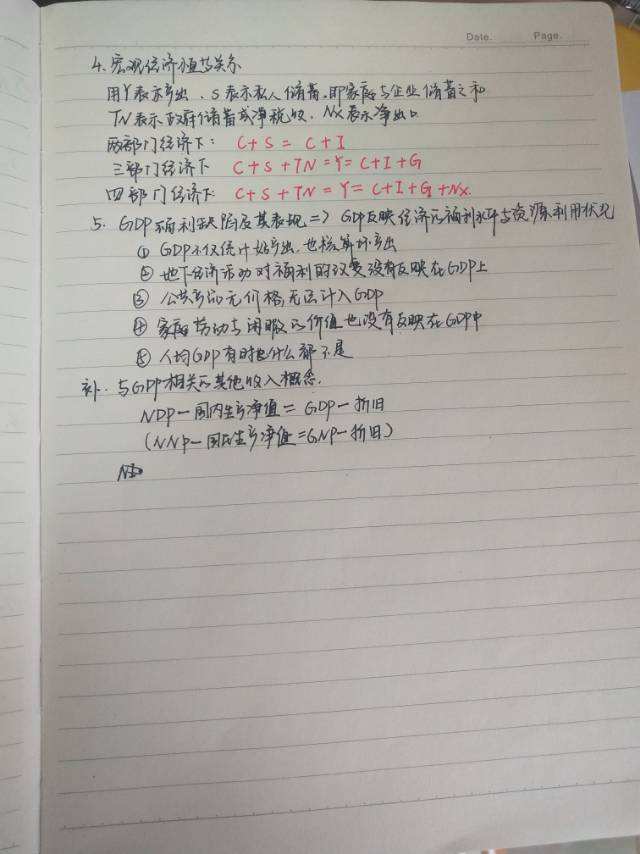 Date. Page.
4. 宏观经济恒等关系
用Y表示产出、S表示私人储蓄,即家庭与企业储蓄之和
TN表示政府储蓄或净税收. NX表示净出口
两部门经济下: C+S = C+I
三部门经济下 C+S+TN=Y=C+I+G
四部门经济下: C+S+TN=Y=C+I+G+NX.
5. GDP福利缺陷及其表现=> GDP反映经济的福利水平与资源利用状况
① GDP不仅统计好产出,也核算坏产出
② 地下经济活动对福利的改变没有反映在GDP上
③ 公共物品无价格,无法计入GDP
④ 家庭劳动与闲暇的价值也没有反映在GDP中
⑤ 人均GDP有时也什么都不是
补. 与GDP相关的其他收入概念.
NDP—国内生产净值 = GDP—折旧
(NNP—国民生产净值=GNP—折旧)